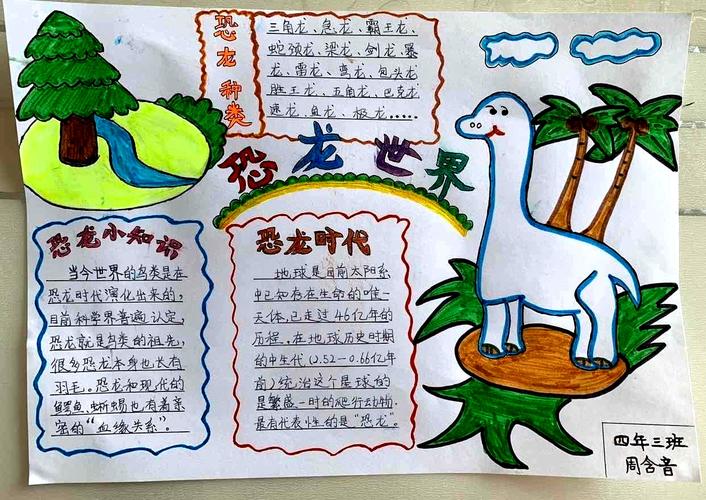 恐龙种类
三角龙、急龙、霸王龙、
蛇颈龙、梁龙、剑龙、暴
龙、雷龙、鸾龙、包头龙
胜王龙、五角龙、巴克龙
速龙、鱼龙、极龙.....
恐龙世界
恐龙小知识
当今世界的鸟类是在
恐龙时代演化出来的，
目前科学界普遍认定，
恐龙就是鸟类的祖先，
很多恐龙本身也长有
羽毛。恐龙和现代的
鳄鱼、蜥蜴也有着亲
密的“血缘关系”。
恐龙时代
地球是目前太阳系
中已知存在生命的唯一
天体，已走过46亿年的
历程。在地球历史时期
的中生代（2.52—0.66亿年
前）统治这个星球的
是繁盛一时的爬行动物.
最有代表性的是“恐龙”。
四年三班
周含音